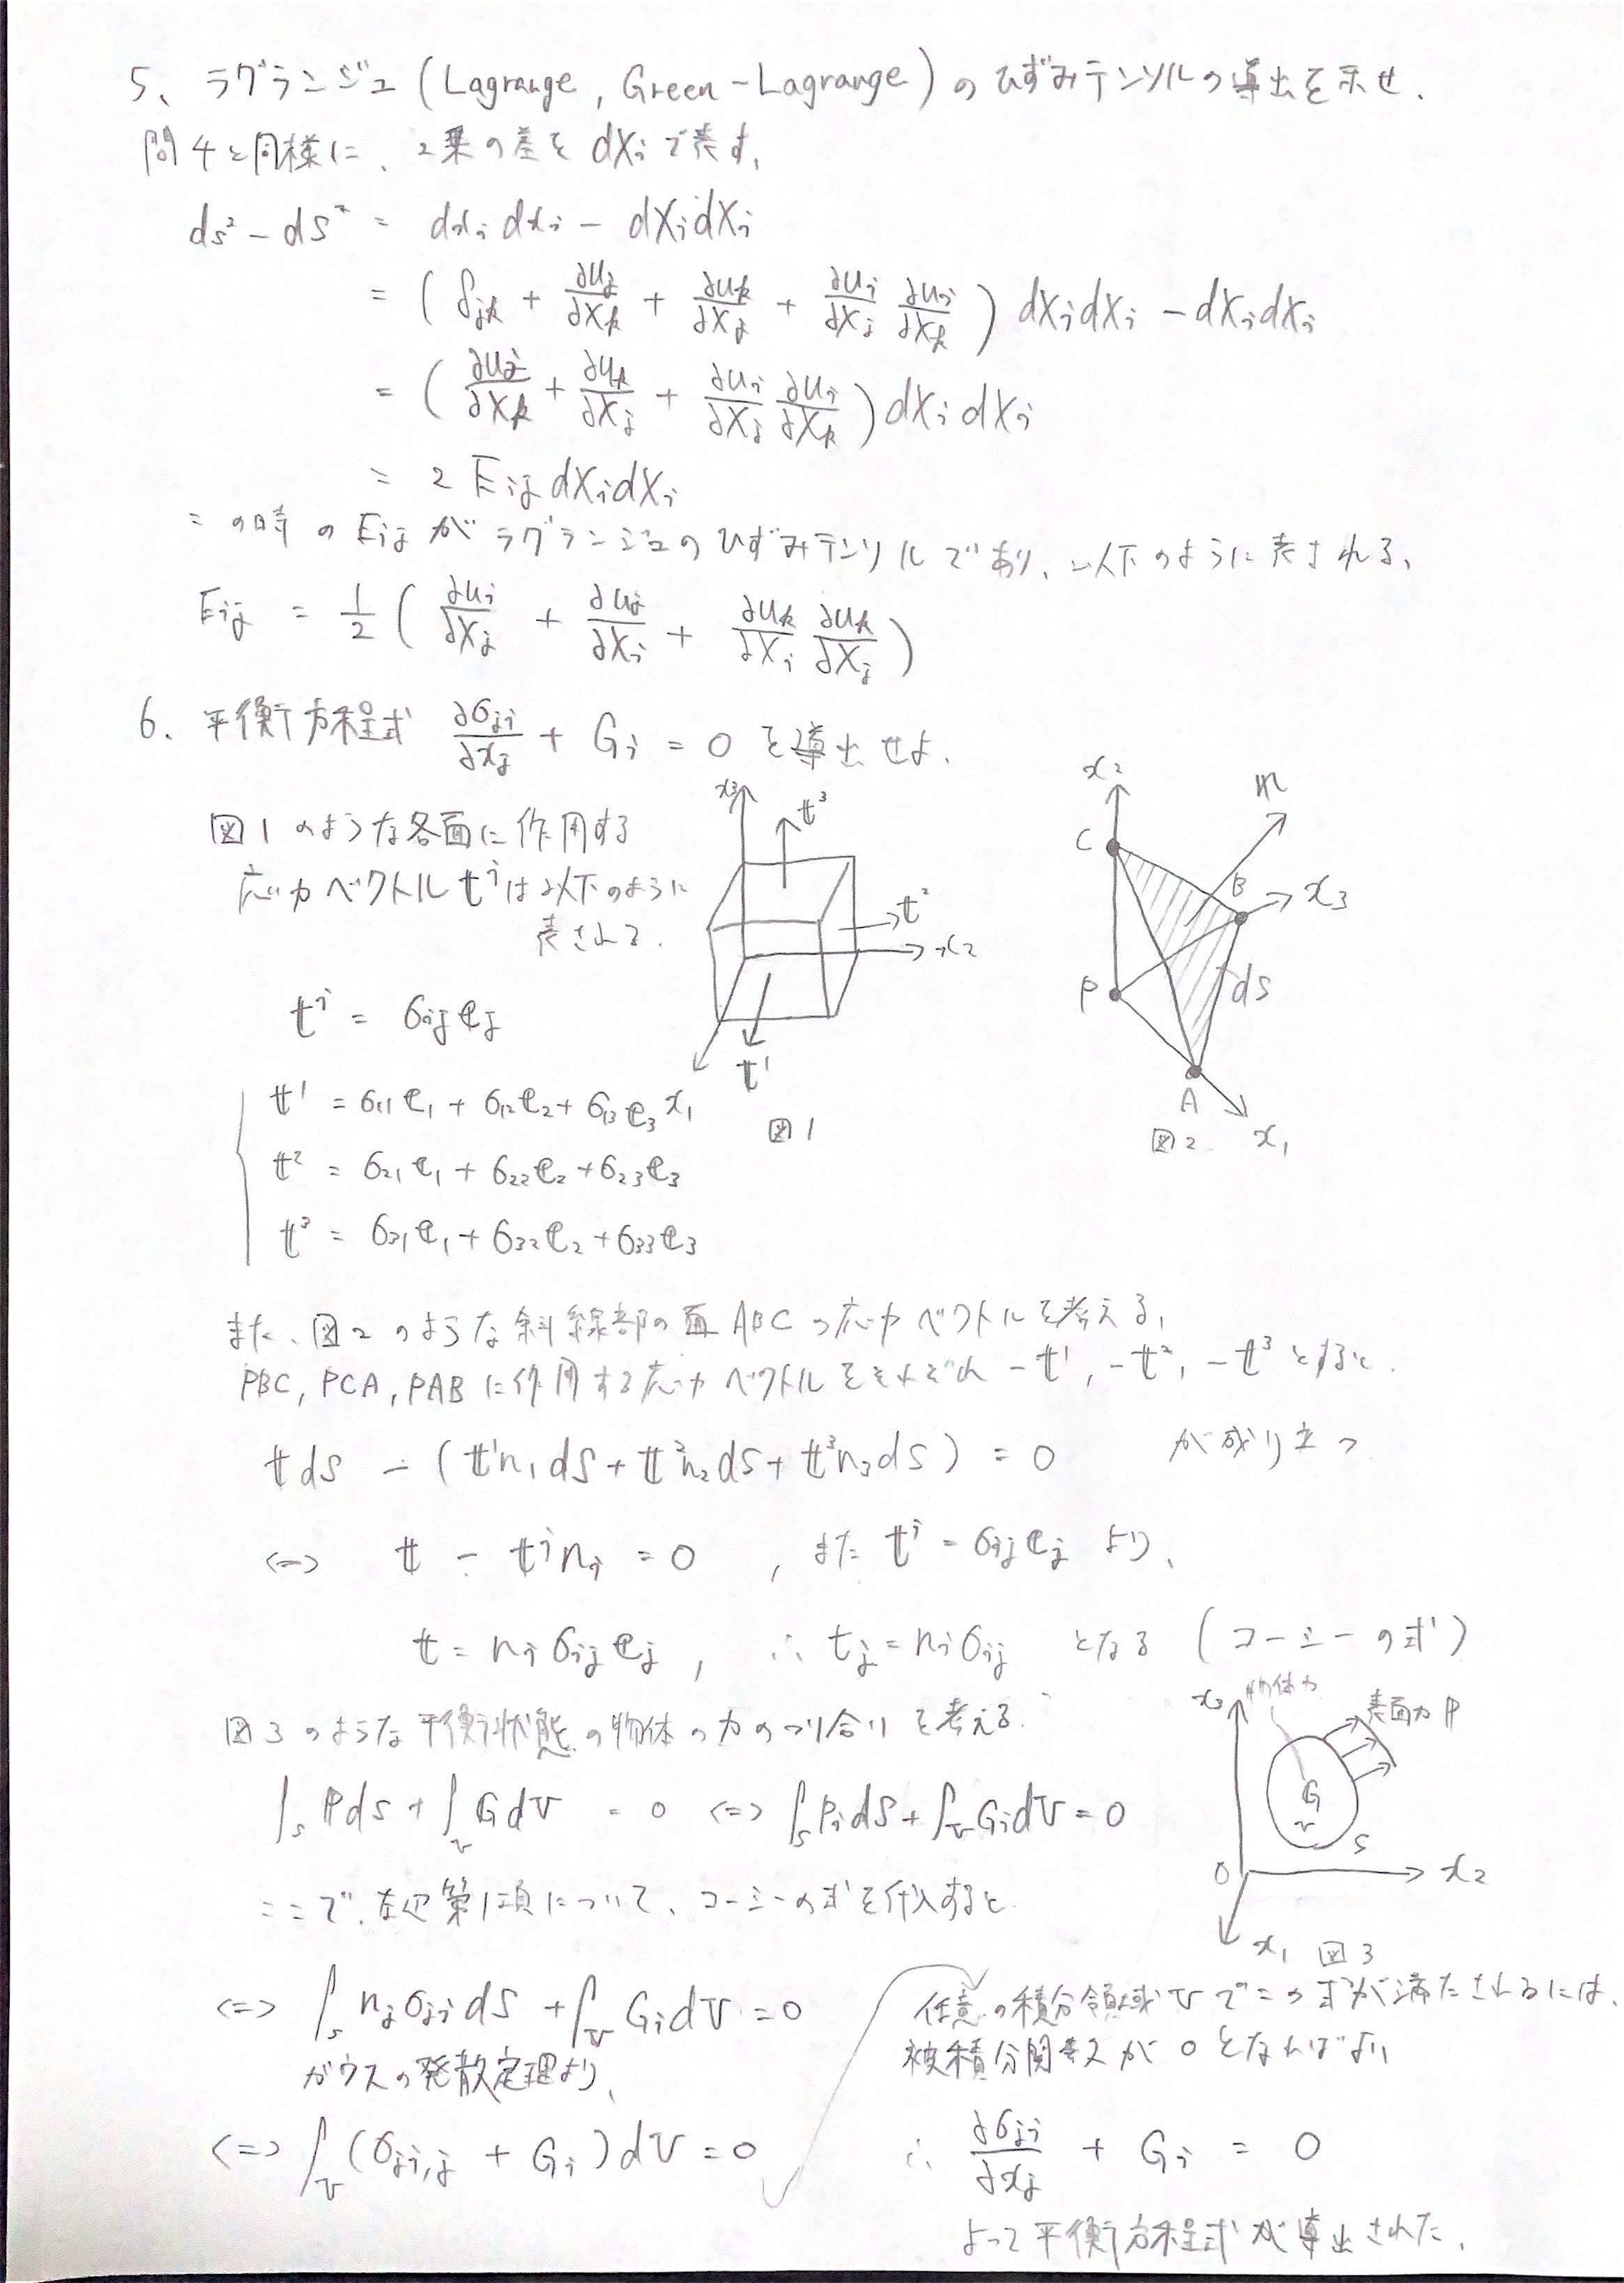 5、ラグランジュ (Lagrange, Green-Lagrange) のひずみテンソルの導出を示せ.
問4と同様に、2乗の差を dXi で表す.
ds² - dS² = dxi dxi - dXi dXi
= ( δjk + ∂uj/∂Xk + ∂uk/∂Xj + ∂ui/∂Xj ∂ui/∂Xk ) dXi dXi - dXi dXi
= ( ∂uj/∂Xk + ∂uk/∂Xj + ∂ui/∂Xj ∂ui/∂Xk ) dXi dXi
= 2 Eij dXi dXi
この時の Eij がラグランジュのひずみテンソルであり、以下のように表される、
Eij = 1/2 ( ∂ui/∂Xj + ∂uj/∂Xi + ∂uk/∂Xi ∂uk/∂Xj )
6、平衡方程式 ∂σji/∂xj + Gi = 0 を導出せよ.
図1のような各面に作用する
応力ベクトル tⁱ は以下のように
表される.
tⁱ = σij ej
t¹ = σ11 e1 + σ12 e2 + σ13 e3
t² = σ21 e1 + σ22 e2 + σ23 e3
t³ = σ31 e1 + σ32 e2 + σ33 e3
x3
t³
t²
x2
t¹
x1
図1
x2
n
C
B
x3
P
dS
A
x1
図2
また、図2のような斜線部の面 ABC の応力ベクトルを考える,
PBC, PCA, PAB に作用する応力ベクトルをそれぞれ -t¹, -t², -t³ とすると.
t dS - ( t¹n1 dS + t²n2 dS + t³n3 dS ) = 0 が成り立つ
<=> t - tⁱ ni = 0 , また tⁱ = σij ej より、
t = ni σij ej , ∴ tj = ni σij となる (コーシーの式)
図3のような平衡状態の物体の力のつり合いを考える.
∫s P dS + ∫v G dV = 0 <=> ∫s Pi dS + ∫v Gi dV = 0
x3
物体力
表面力 P
G
v
S
O
x2
x1
図3
ここで、左辺第1項について、コーシーの式を代入すると
<=> ∫s nj σji dS + ∫v Gi dV = 0
ガウスの発散定理より、
<=> ∫v ( σji,j + Gi ) dV = 0
任意の積分領域 V でこの式が満たされるには、
被積分関数が 0 となればよい
∴ ∂σji/∂xj + Gi = 0
よって平衡方程式が導出された.